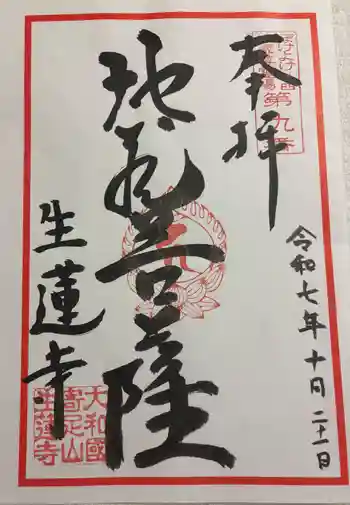 奉拝
第九番
令和七年十月二十一日
地蔵菩薩
生蓮寺
大和國
寄足山
生蓮寺